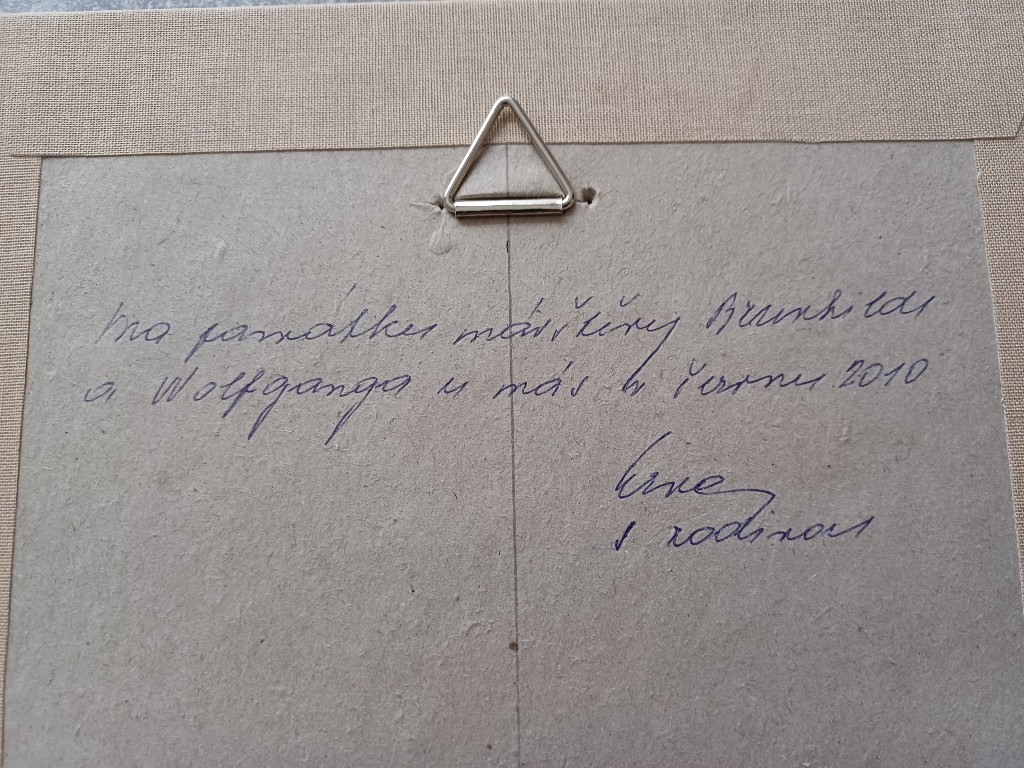 Na památku návštěvy Brunhildy
a Wolfganga u nás v červnu 2010
Erna
s rodinou